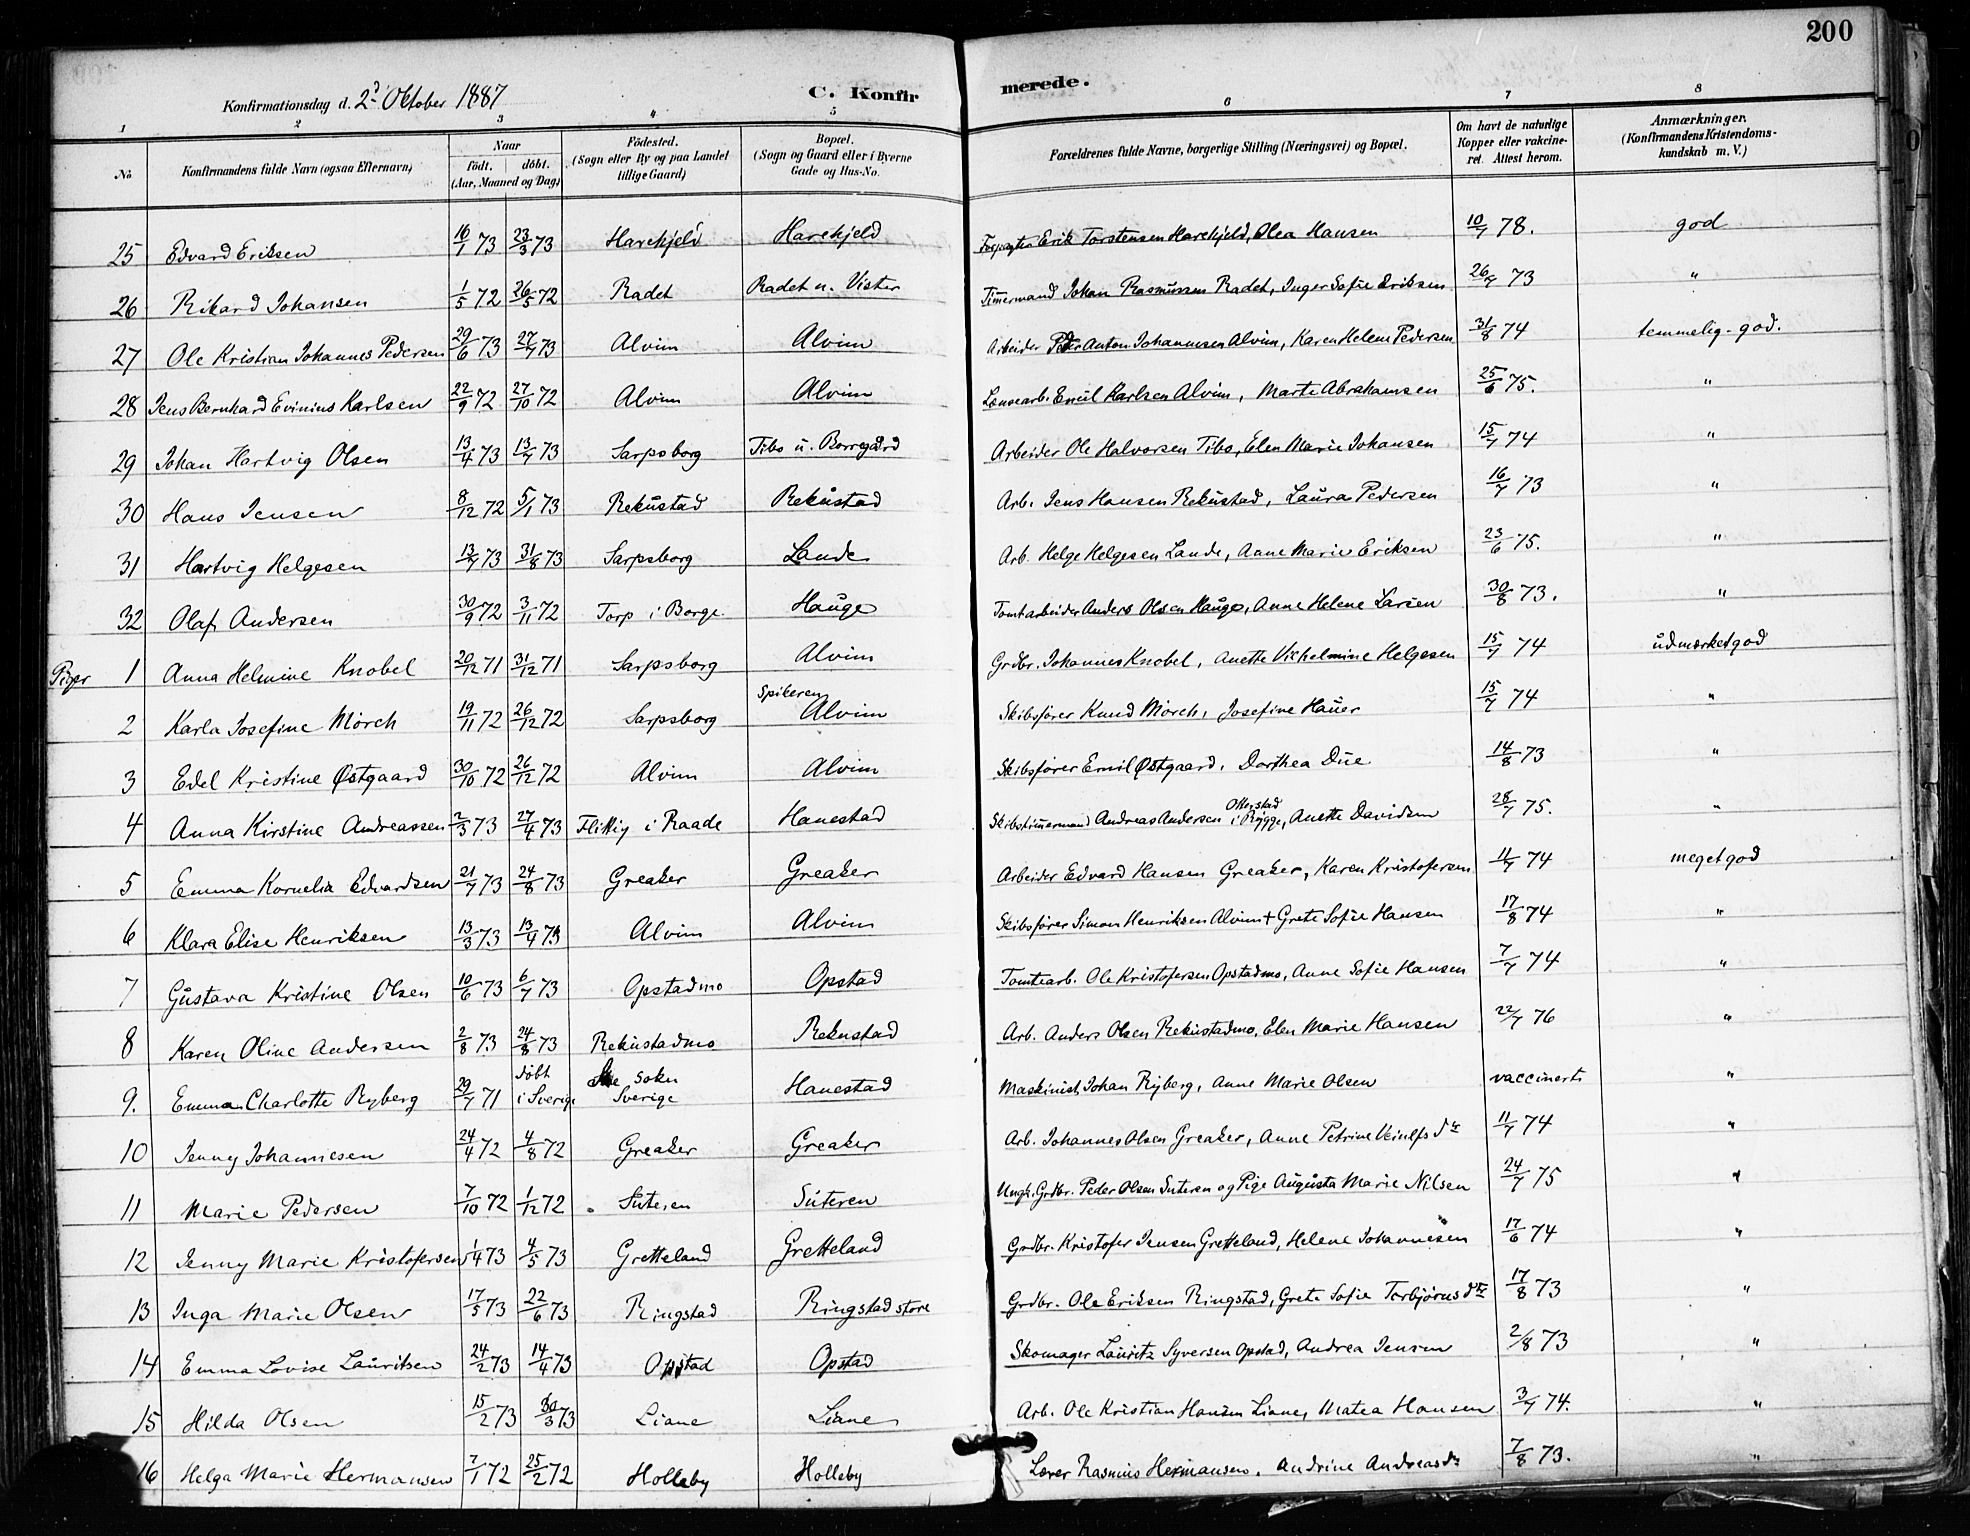 200
Konfirmationsdag d. 2? Oktober 1887
C. Konfir merede.
1 2 3 4 5 6 7 8
No
Konfirmandens fulde Navn (ogsaa Efternavn)
Naar
født. døbt.
(Aar, Maaned og Dag)
Fødested.
(Sogn eller By og paa Landet
tillige Gaard)
Bopæl.
(Sogn og Gaard eller i Byerne
Gade og Hus-No.
Forældrenes fulde Navne, borgerlige Stilling (Næringsvei) og Bopæl.
Om havt de naturlige
Kopper eller vakcine-
ret. Attest herom.
Anmærkninger.
(Konfirmandens Kristendoms-
kundskab m. V.)
25 Edvard Eriksen 16/1 73 23/3 73 Harekjeld Harekjeld Forpagter Erik Torstensen Harekjeld, Olea Hansen 10/7 78. god
26 Rikard Johansen 1/5 72 26/5 72 Radet Radet u. Vister Timermand Johan Rasmussen Radet, Inger Sofie Eriksen 26/7 73 "
27 Ole Kristian Johannes Pedersen 29/6 73 27/7 73 Alvim Alvim Arbeider Peder Anton Johannesen Alvim, Karen Helene Pedersen 31/8 74 temmelig-god.
28 Jens Bernhard Evinius Karlsen 22/9 72 27/10 72 Alvim Alvim Lænsearb. Emil Karlsen Alvim, Marte Abrahamsen 25/6 75. "
29 Johan Hartvig Olsen 13/4 73 13/7 73 Sarpsborg Tibo u. Borregård Arbeider Ole Halvorsen Tibo, Elen Marie Johansen 15/7 74 "
30 Hans Jensen 8/12 72 5/1 73 Rekustad Rekustad Arb. Jens Hansen Rekustad, Laura Pedersen 16/7 73 "
31 Hartvig Helgesen 13/7 73 31/8 73 Sarpsborg Lande Arb. Helge Helgesen Lande, Anne Marie Eriksen 23/6 75. "
32 Olaf Andersen 30/9 72 3/11 72 Torp i Borge. Hauge Tomtarbeider Anders Olsen Hauge, Anne Helene Larsen 30/8 73. "
Piger 1 Anna Helmine Knobel 20/12 71 31/12 71 Sarpsborg Alvim Grdbr. Johannes Knobel, Anette Vilhelmine Helgesen 15/7 74 udmærket god
2 Karla Josefine Mörch 19/11 72 26/12 72 Sarpsborg Spikeren Alvim Skibsfører Knud Mörch, Josefine Hauer 15/7 74 "
3 Edel Kristine Østgaard 30/10 72 26/12 72 Alvim Alvim Skibsfører Emil Østgaard, Dorthea Due 14/8 73 "
4 Anna Kirstine Andreassen 2/3 73 27/4 73 Flittig i Raade Hanestad Skibstimermand Andreas Andersen Otterstad i Rygge, Anette Davidsen 28/7 75. "
5 Emma Kornelia Edvardsen 21/7 73 24/8 73 Greaker Greaker Arbeider Edvard Hansen Greaker, Karen Kristofersen 11/7 74 meget god
6 Klara Elise Henriksen 13/3 73 13/4 73 Alvim Alvim Skibsfører Simon Henriksen Alvim + Grete Sofie Hansen 17/8 74 "
7 Gustava Kristine Olsen 10/6 73 6/7 73 Opstadmo Opstad Tomtearb. Ole Kristofersen Opstadmo, Anne Sofie Hansen 7/7 74 "
8 Karen Oline Andersen 2/8 73 24/8 73 Rekustadmo Rekustad Arb. Anders Olsen Rekustadmo, Elen Marie Hansen 22/7 76 "
9. Emma Charlotte Ryberg 29/7 71 døbt i Sverige sokn Sverige Hanestad Maskinist Johan Ryberg, Anne Marie Olsen vaccinerts "
10 Jenny Johannesen 24/4 72 4/8 72 Greaker Greaker Arb. Johannes Olsen Greaker, Anne Petrine 11/7 74 "
11 Marie Pedersen 7/10 72 1/12 72 Suteren Suteren Ungk. Grdbr. Peder Olsen Suteren og Pige Augusta Marie Nilsen 24/7 75 "
12 Jenny Marie Kristofersen 1/4 73 4/5 73 Gretteland Gretteland Grdbr. Kristofer Jensen Gretteland, Helene Johannesen 17/6 74 "
13 Inga Marie Olsen 17/5 73 22/6 73 Ringstad Ringstad store Grdbr. Ole Eriksen Ringstad, Grete Sofie Torbjørnsdtr 17/8 73 "
14 Emma Lovise Lauritsen 24/2 73 14/4 73 Opstad Opstad Skomager Lauritz Syversen Opstad, Andrea Jensen 2/8 73 "
15 Hilda Olsen 15/2 73 30/3 73 Liane Liane Arb. Ole Kristian Hansen Liane, Matea Hansen 3/7 74. "
16 Helga Marie Hermansen 7/1 72 25/2 72 Holleby Holleby Lærer Rasmus Hermansen, Andrine Andreasdr 7/8 73. "